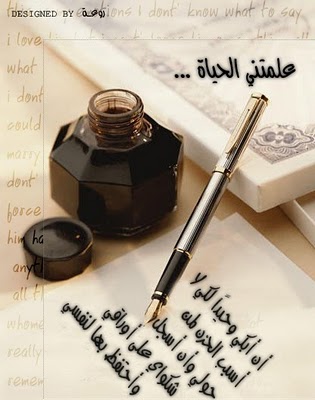 DESIGNED BY روعـة
i don't know what to say
i love
what
i dont
could
marry
dont'
force
him ha
all
really
علمتني الحياة ...
أن أبكي وحيدًا لكي لا
أسبب الحزن لمن
حولي وأن أسجل
شكواي على أوراقي
وأحتفظ بها لنفسي